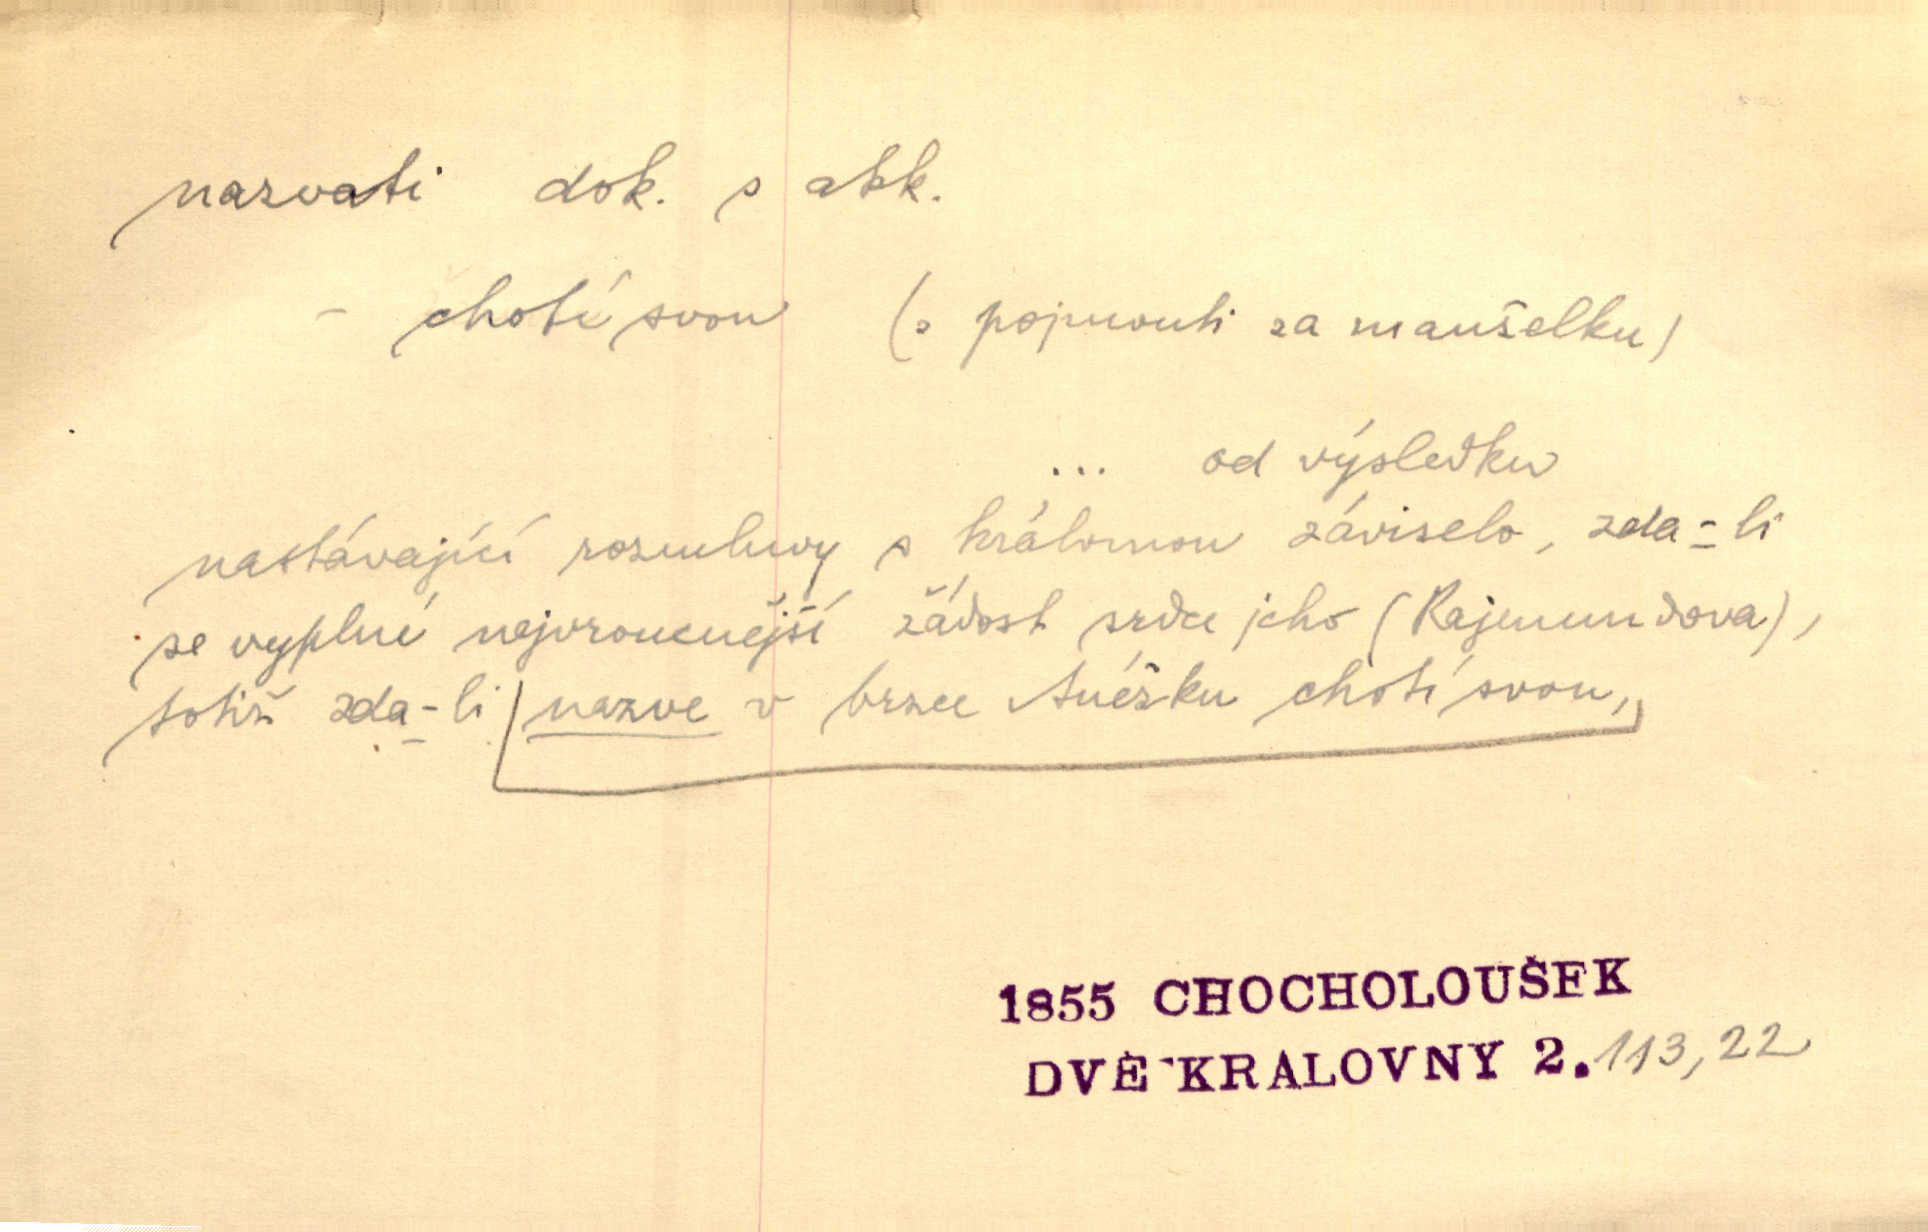 nazvati dok. s akk.
- chotí svou (= pojmouti za manželku)
... od výsledku
nastávající rozmluvy s královnou záviselo, zda-li
se vyplní nejvroucnější žádost srdce jeho (Rajmundova),
totiž zda-li nazve v brzce Anéžku chotí svou,
1855 CHOCHOLOUŠEK
DVĚ KRALOVNY 2. 113, 22